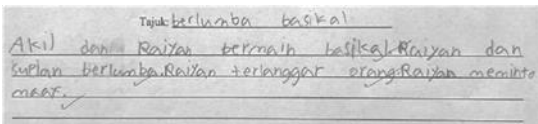 Tajuk: berlumba basikal
Akil dan Raiyan bermain basikal. Raiyan dan
Sufian berlumba. Raiyan terlanggar orang. Raiyan meminta
maaf.